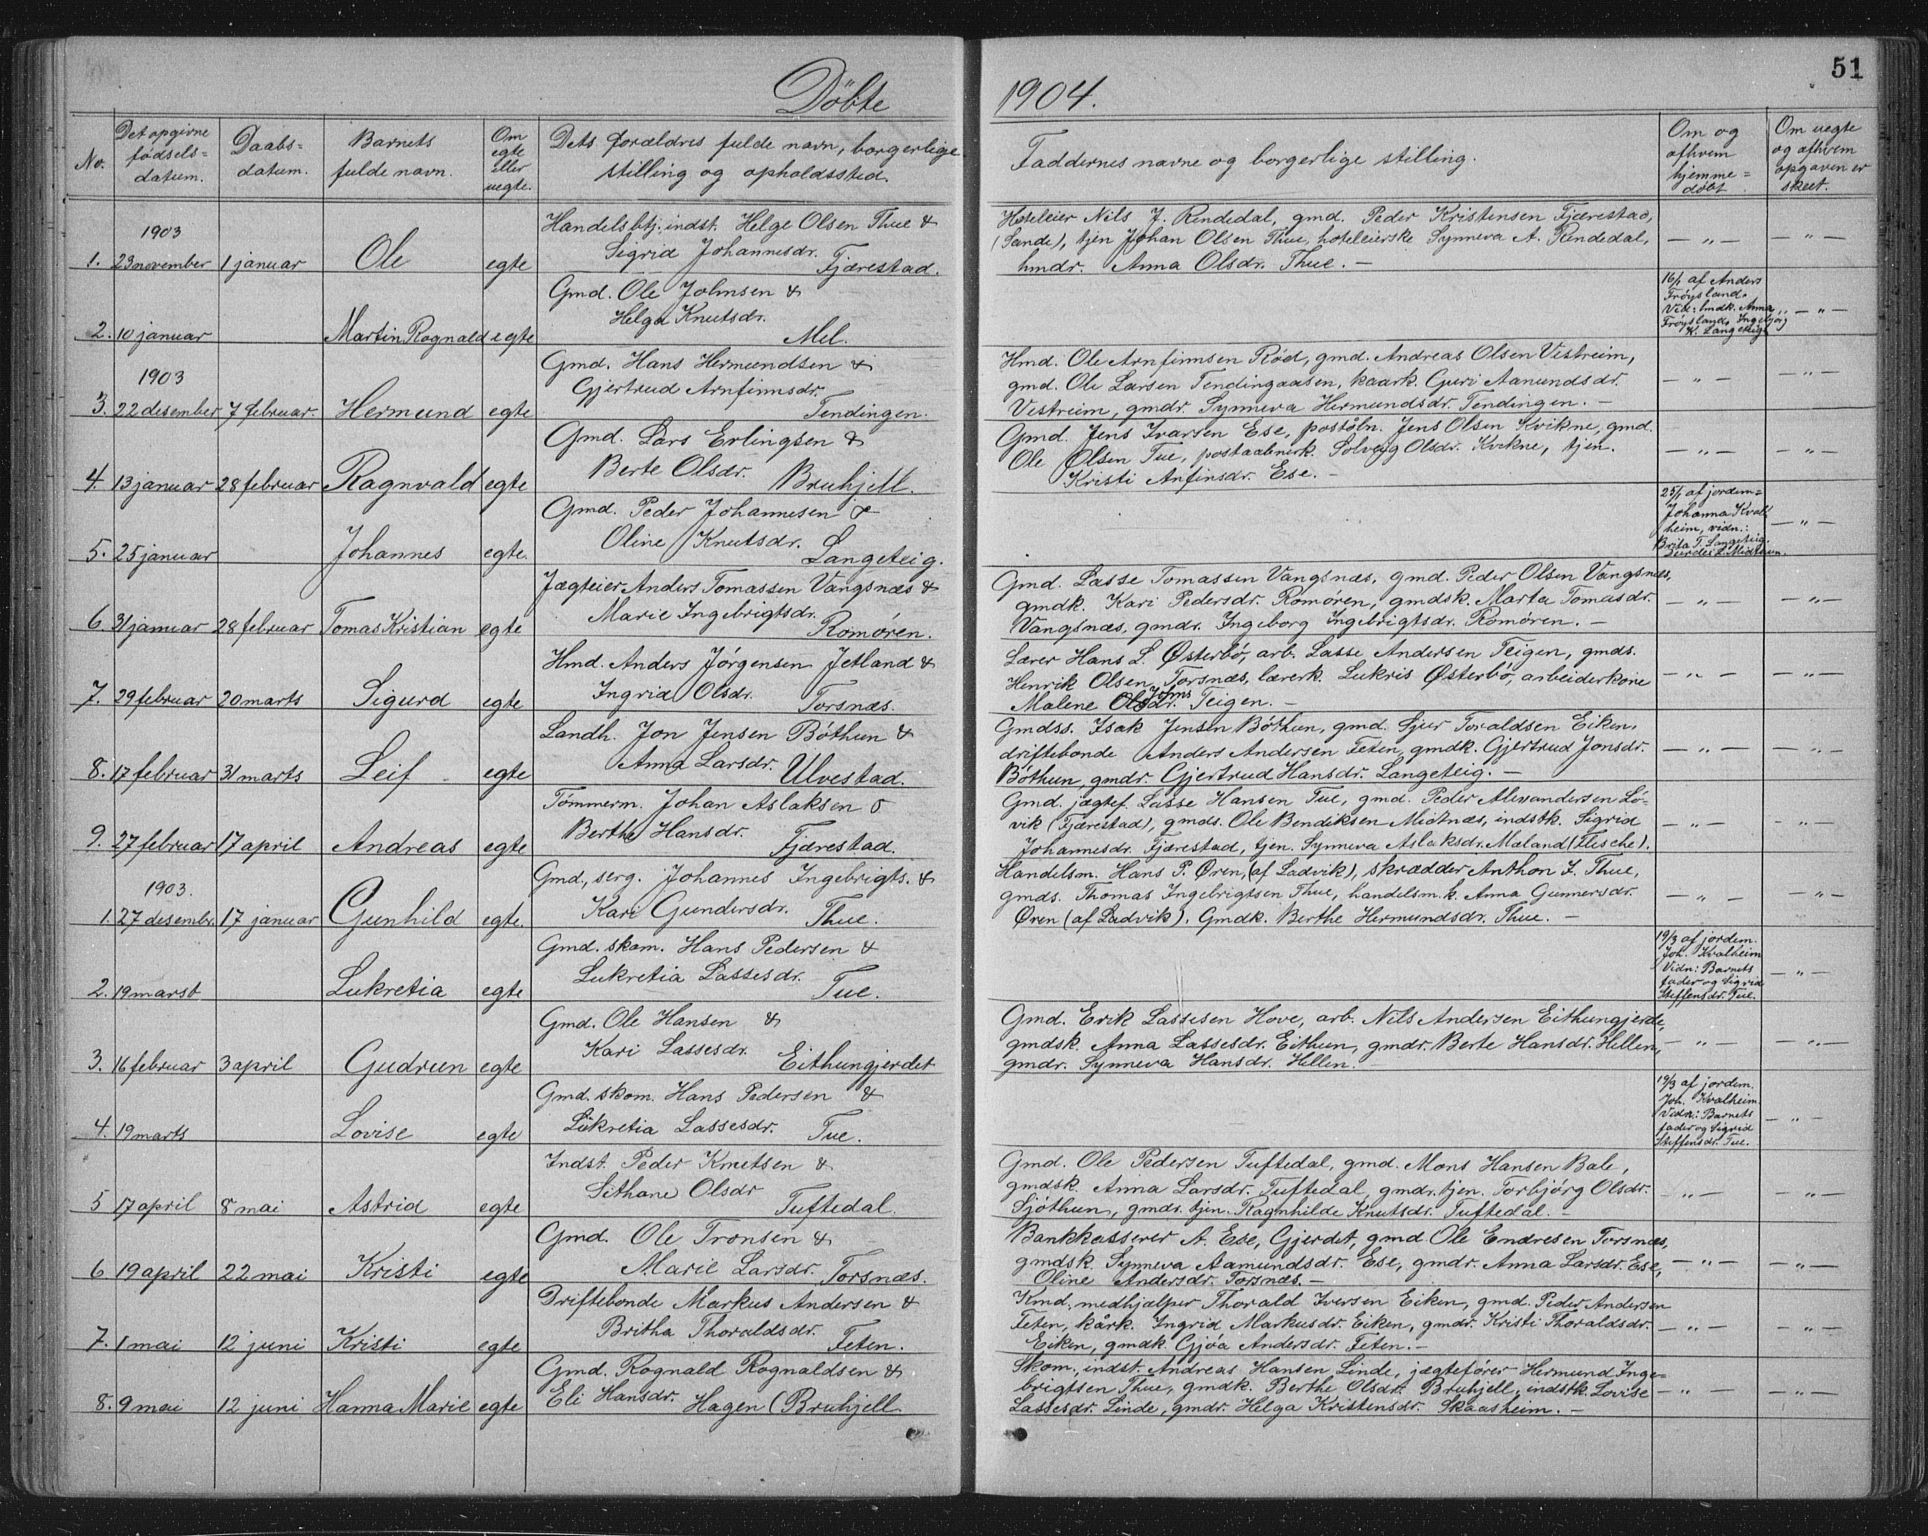 51
Döbte 1904.
No.
Det opgivne
fødsels-
datum.
Daabs-
datum.
Barnets
fulde navn.
Om
egte
eller
uegte.
Dets forældres fulde navn, borgerlige
stilling og opholdssted.
Faddernes navne og borgerlige stilling.
Om og
afhvem
hjemme=
døbt
Om uegte
og afhvem
opgaven er
skeet.
Handelsbtj. indst. Helge Olsen Thue &
1903
Sigrid Johannesdr.
1. 23 november 1 januar Ole egte Fjærestad.
Hoteleier Nils J. Rendedal, gmd. Peder Kristensen Fjærestad,
(Sande), tjen Johan Olsen Thue, hoteleierske Synneva A. Rendedal, — „ — — „ —
hmdr. Anna Olsdr. Thue. —
Gmd. Ole Johnsen &
Helga Knutsdr.
2. 10 januar Martin Rognald egte Mel.
16/1 af Anders
Frøysland.
Vid: hmdk. Anna
Frøysland, Ingebjørg
K. Langeteig
— „ —
Gmd. Hans Hermundsen &
1903
Gjertrud Arnfinnsdr.
3. 22 desember 7 februar. Hermund egte Tendingen.
Hmd. Ole Arnfinnsen Röd, gmd. Andreas Olsen Vestreim,
gmd. Ole Larsen Tendingaasen, kaark. Guri Aamundsdr. — „ — — „ —
Vestreim, gmdr. Synneva Hermundsdr. Tendingen. —
Gmd. Lars Erlingsen &
Berte Olsdr.
4. 13 januar 28 februar Ragnvald egte Bruhjell.
Gmd. Jens Ivarsen Ese, postöbn. Jens Olsen Kvikne, gmd.
Ole Olsen Tue, postaabnerk. Solveig Olsdr. Kvikne, tjen. — „ — — „ —
Kristi Anfinsdr. Ese. —
Gmd. Peder Johannesen &
Oline Knutsdr.
5. 25 januar Johannes egte. Langeteig.
25/1 af jordem=
Johanna Kval
heim, vidn.:
Brita T. Langeteig.
— „ —
Jægteier Anders Tomassen Vangsnæs &
Marie Ingebrigtsdr.
6. 31 januar 28 februar Tomas Kristian egte Romören.
Gmd. Lasse Tomassen Vangsnæs, gmd. Peder Olsen Vangsnæs,
gmdk. Kari Pedersdr. Romören, gmdsk. Marta Tomasdr. — „ — — „ —
Vangsnæs, gmdr. Ingeborg Ingebrigtsdr. Romören. —
Hmd. Anders Jörgensen Jetland &
Ingrid Olsdr.
7. 29 februar 20 marts Sigurd egte Torsnæs.
Lærer Hans L. Østerbö, arb. Lasse Andersen Teigen, gmds.
Henrik Olsen Torsnæs, lærerk. Lukris Østerbö, arbeiderkone — „ — — „ —
Malene Olsdr. Teigen. —
Landh. Jon Jensen Böthun &
Anna Larsdr.
8. 17 februar 31 marts Leif egte Ulvestad.
Gmdss. Isak Jensen Böthun, gmd. Sjur Toraldsen Eiken,
driftebonde Anders Andersen Feten, gmdk. Gjertrud Jonsdr. — „ — — „ —
Böthun, gmdr. Gjertrud Hansdr. Langeteig. —
Tömmerm. Johan Aslaksen &
Berthe Hansdr.
9. 27 februar 17 april Andreas egte Fjærestad.
Gmd. jægtef. Lasse Hansen Tue, gmd. Peder Alexandersen Lö-
vik (Fjærestad), gmds. Ole Bendiksen Midtnæs, indstk. Sigrid — „ — — „ —
Johannesdr. Fjærestad, tjen. Synneva Aslaksdr. Mæland (Flesche).
Gmd, serg. Johannes Ingebrigts. &
1903.
Kari Gundersdr.
1. 27 desembr. 17 januar Gunhild egte. Thue.
Handelsm. Hans P. Øren, (af Ladvik), skrædder Anthon I. Thue,
gmds. Thomas Ingebrigtsen Thue, handelsm.k. Anna Gunnersdr. — „ — — „ —
Øren (af Ladvik). Gmdk. Berthe Hermundsdr. Thue. —
Gmd. skom. Hans Pedersen &
Lukretia Lassesdr.
2. 19 marst Lukretia egte Tue.
19/3 af jordem.
Joh. Kvalheim
Vidn: Barnets
fader og Sigrid
Steffensdr. Tue.
— „ —
Gmd. Ole Hansen &
Kari Lassesdr.
3. 16 februar 3 april Gudrun egte Eithungjerdet
Gmd. Erik Lassesen Hove, arb. Nils Andersen Eithungjerde,
gmdsk. Anna Lassesdr. Eithun, gmdr. Berte Hansdr. Hellen, — „ — — „ —
gmdr. Synneva Hansdr. Hellen. —
Gmd. skom. Hans Pedersen &
Lukretia Lassesdr.
4. 19 marts Lovise egte Tue.
19/3 af jordem.
Joh. Kvalheim.
Vidn: Barnets
fader og Sigrid
Steffensdr. Tue.
— „ —
Indst. Peder Knutsen &
Sithane Olsdr
5 17 april 8 mai Astrid egte Tuftedal.
Gmd. Ole Pedersen Tuftedal, gmd. Mons Hansen Bale,
gmdsk. Anna Larsdr. Tuftedal, gmdr. tjen. Torbjörg Olsdr. — „ — — „ —
Sjöthun, gmdr. tjen. Ragnhilde Knutsdr. Tuftedal. —
Gmd. Ole Tronsen &
Marie Larsdr.
6 19 april 22 mai Kristi egte Torsnæs.
Bankkasserer A. Ese, Gjerdet, gmd Ole Endresen Torsnæs,
gmdsk. Synneva Aamundsdr. Ese, gmdr. Anna Larsdr. Ese, — „ — — „ —
Oline Andersdr. Torsnæs. —
Driftebonde Markus Andersen &
Britha Thoraldsdr.
7. 1 mai 12 juni Kristi egte Feten.
Kmd, medhjælper Thorald Iversen Eiken, gmd. Peder Andersen
Feten, kårk. Ingrid Markusdr. Eiken, gmdr. Kristi Thoraldsdr. — „ — — „ —
Eiken, gmdk. Gjöa Andersdr. Feten. —
Gmd. Rognald Rognaldsen &
Eli Hansdr.
8. 9 mai 12 juni Hanna Marie egte Hagen (Bruhjell
Skom., indst. Andreas Hansen Linde, jægtefører Hermund Inge-
brigtsen Thue, gmdk. Berthe Olsdr. Bruhjell, indstk. Lovise — „ — — „ —
Lassesdr. Linde, gmdr. Helga Kristensdr. Skaasheim. —